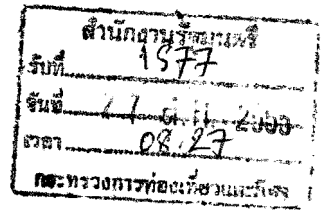 สำนักงานรัฐมนตรี
รับที่ 1577
วันที่
เวลา 08.27
กระทรวงการท่องเที่ยวและกีฬา